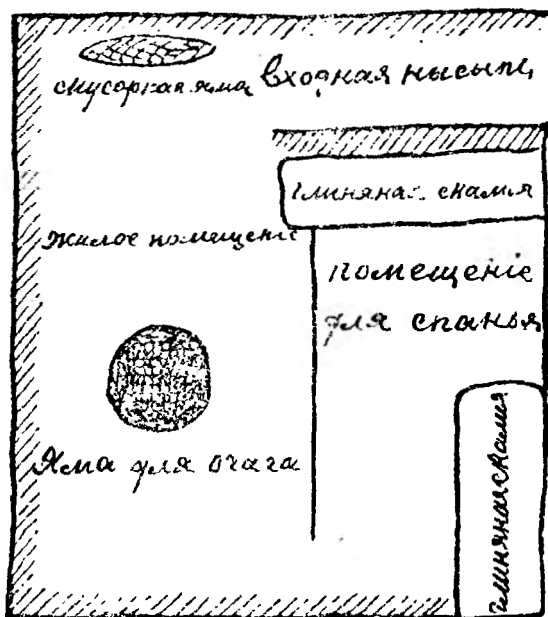 мусорная яма
входная насыпь
глиняная скамья
Жилое помещеніе
помещеніе
для спанья
Яма для очага
глиняная скамья